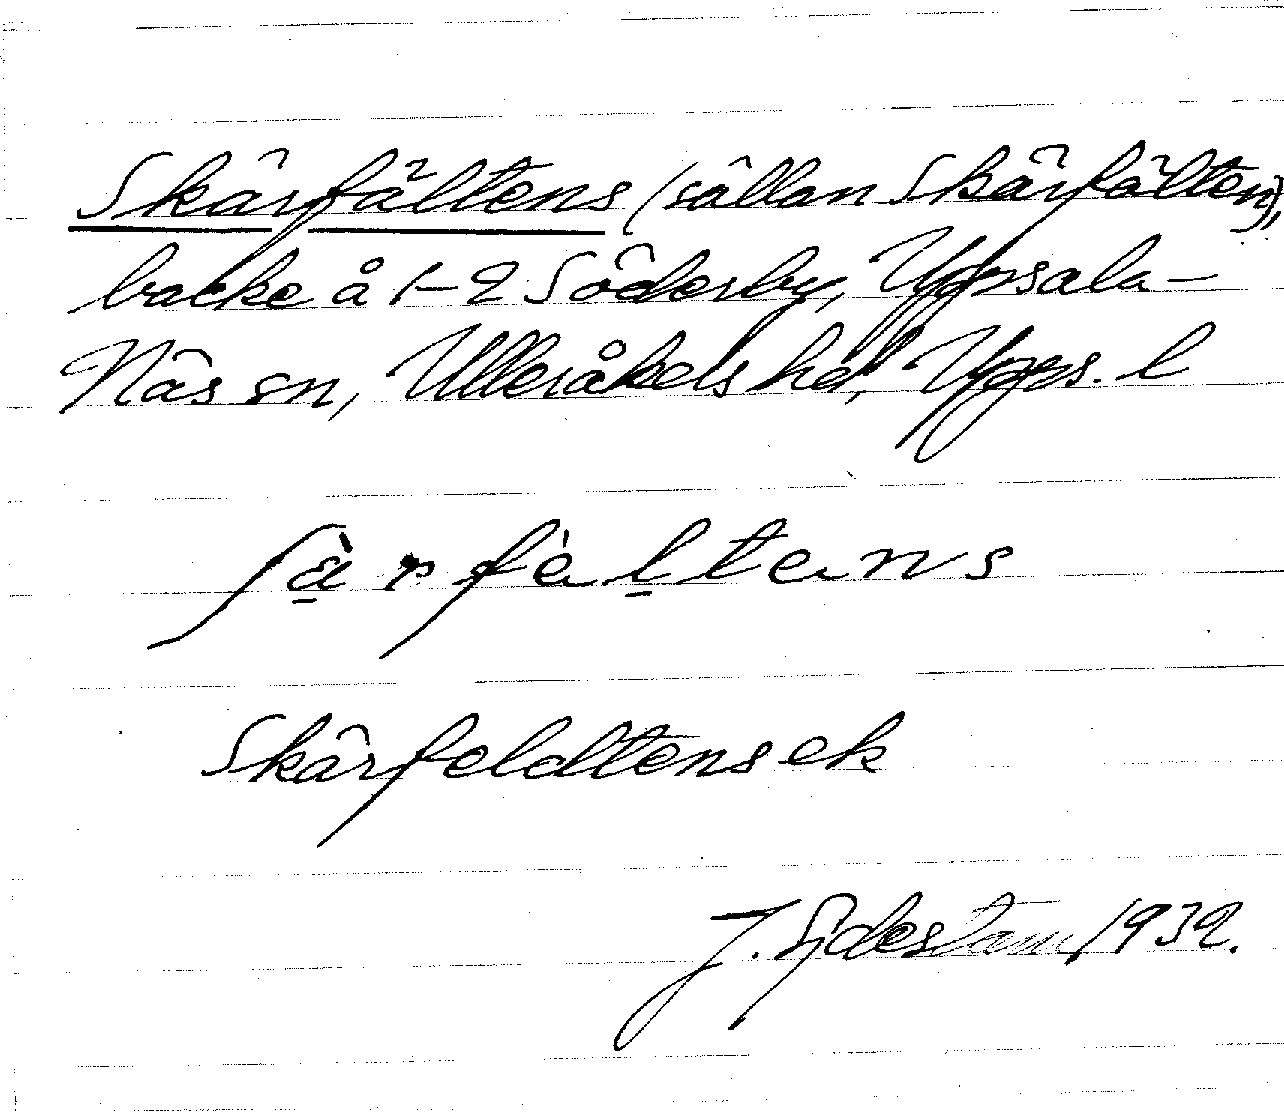 Skärfältens (sällan Skärfälten),
backe å 1-2 Söderby, Uppsala-
Näs sn, Ulleråkers hd, Upps. l
ʃä̀rfàḷtens
Skärfeldtens ek
J. Sjdestam, 1932.